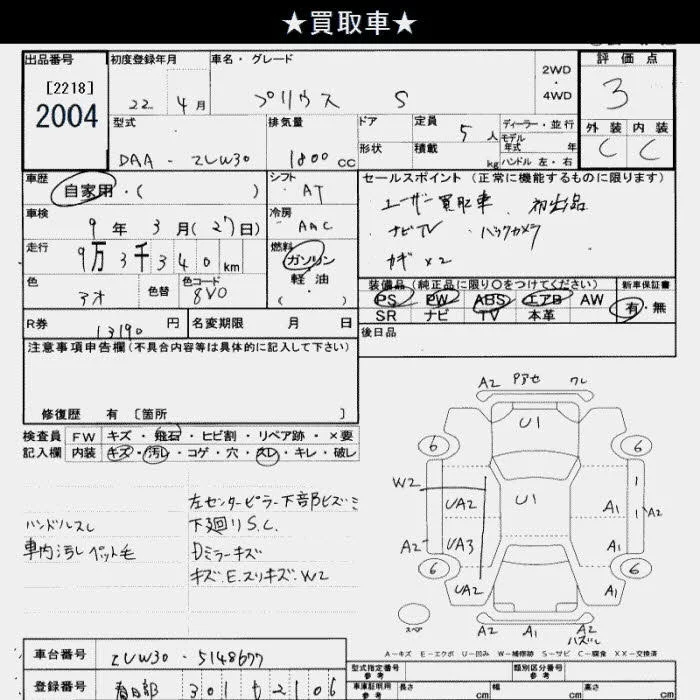 ★買取車★
出品番号 初度登録年月 車名・グレード 2WD・4WD 評価点
[2218]
2004 22年 4月 プリウス S 3
型式 排気量 ドア 定員 5人 ディーラー・並行 外装 内装
モデル年式 年 C C
DAA-ZVW30 1800cc 形状 積載 kg ハンドル 左・右
車歴 シフト セールスポイント (正常に機能するものに限ります)
自家用・( ) AT ユーザー買取車 初出品
車検 冷房 ナビTV バックカメラ
9年 3月(27日) AAC カギ×2
走行 燃料
9万3千340km ガソリン・軽油( )
装備品(純正品に限り〇をつけてください) 新車保証書
色 アオ 色替 色コード 8V0 PS PW ABS エアB AW 有・無
SR ナビ TV 本革
R券 13190円 名変期限 月 日 後日品
注意事項申告欄(不具合内容等は具体的に記入して下さい)
修復歴 有 〔箇所 〕
検査員 FW キズ・飛石・ヒビ割・リペア跡・×要
記入欄 内装 キズ・汚レ・コゲ・穴・スレ・キレ・破レ
左センターピラー下部ヒズミ
ハンドルスレ 下廻りS.C.
車内汚レペット毛 Dミラーキズ
キズ.E.スリキズ.W2
A2 アセ ワレ
U1
6 6
W2 UA2 U1 A1 A2
A2 UA3 A1
6 6
UA2 A1
スペ A2 A1 A2
ハズレ
A-キズ E-エクボ U-凹み W-補修跡 S-サビ C-腐食 XX-交換済
車台番号 ZVW30-5148677
型式指定番号 参考 類別区分番号 参考
登録番号 春日部 301 も 2106 車庫証明用 参考 長さ cm 幅 cm 高さ cm